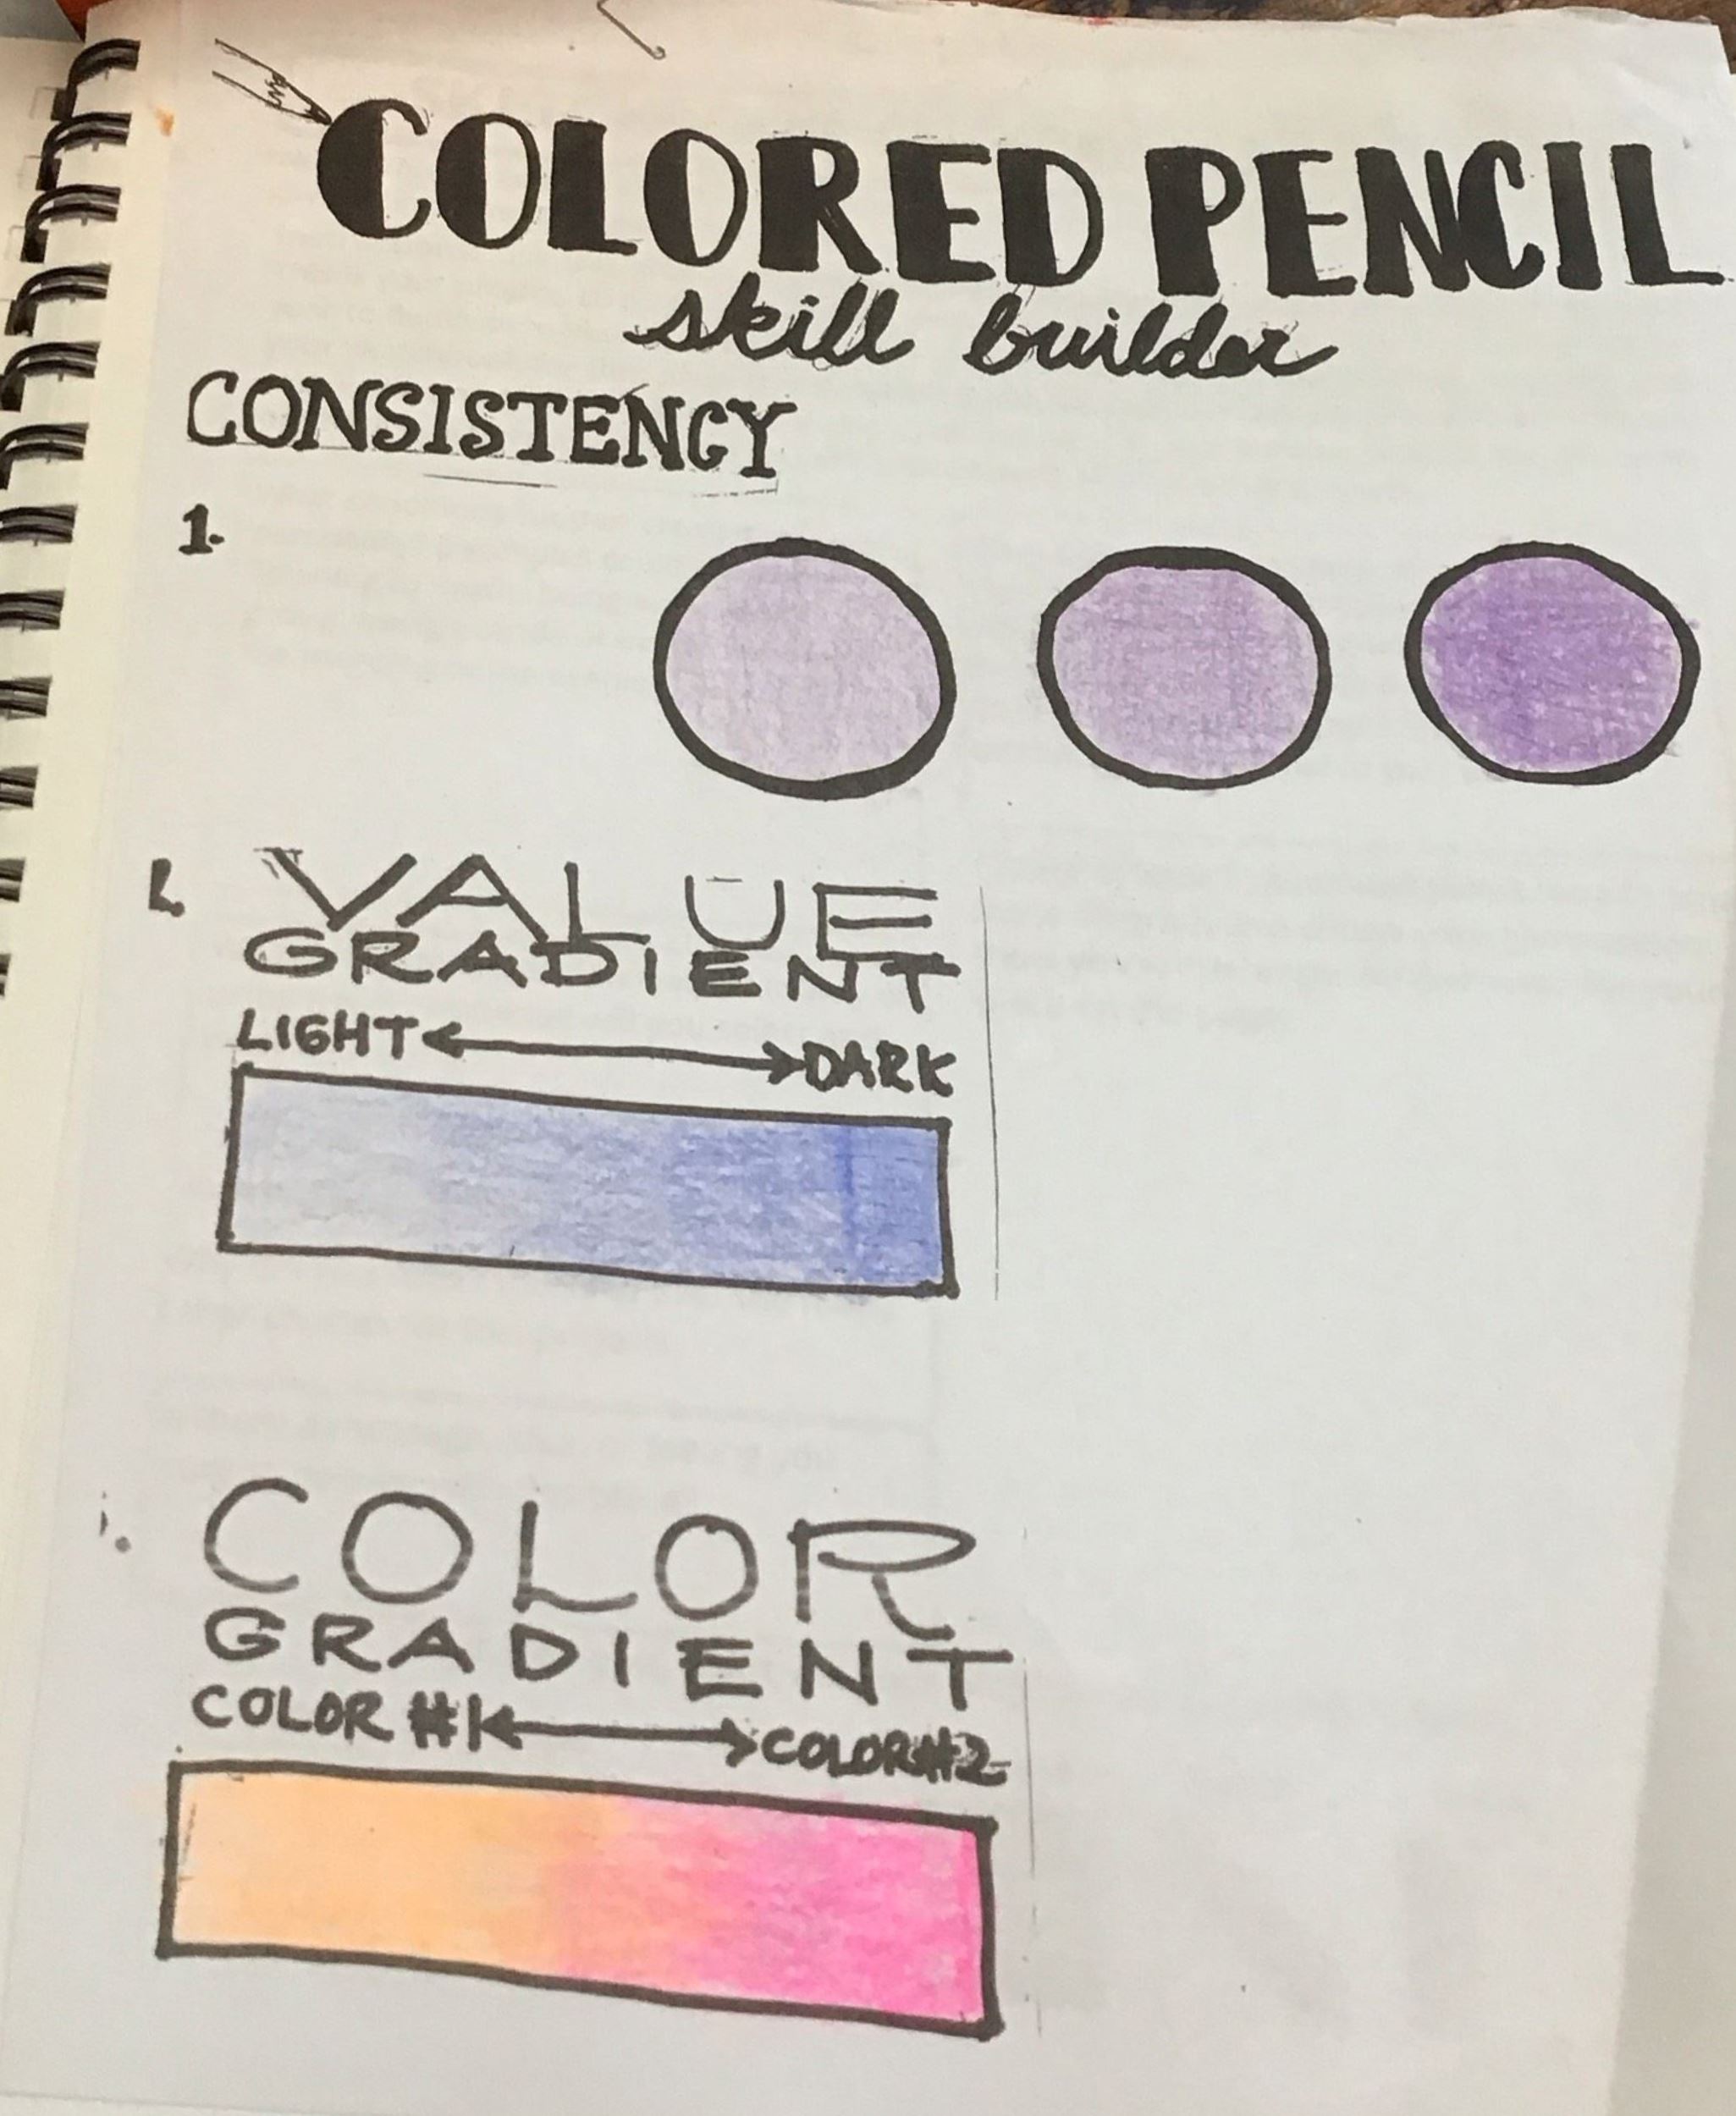 COLORED PENCIL
skill builder
CONSISTENCY
1.
VALUE
GRADIENT
LIGHT DARK
COLOR
GRADIENT
COLOR #1 COLOR #2